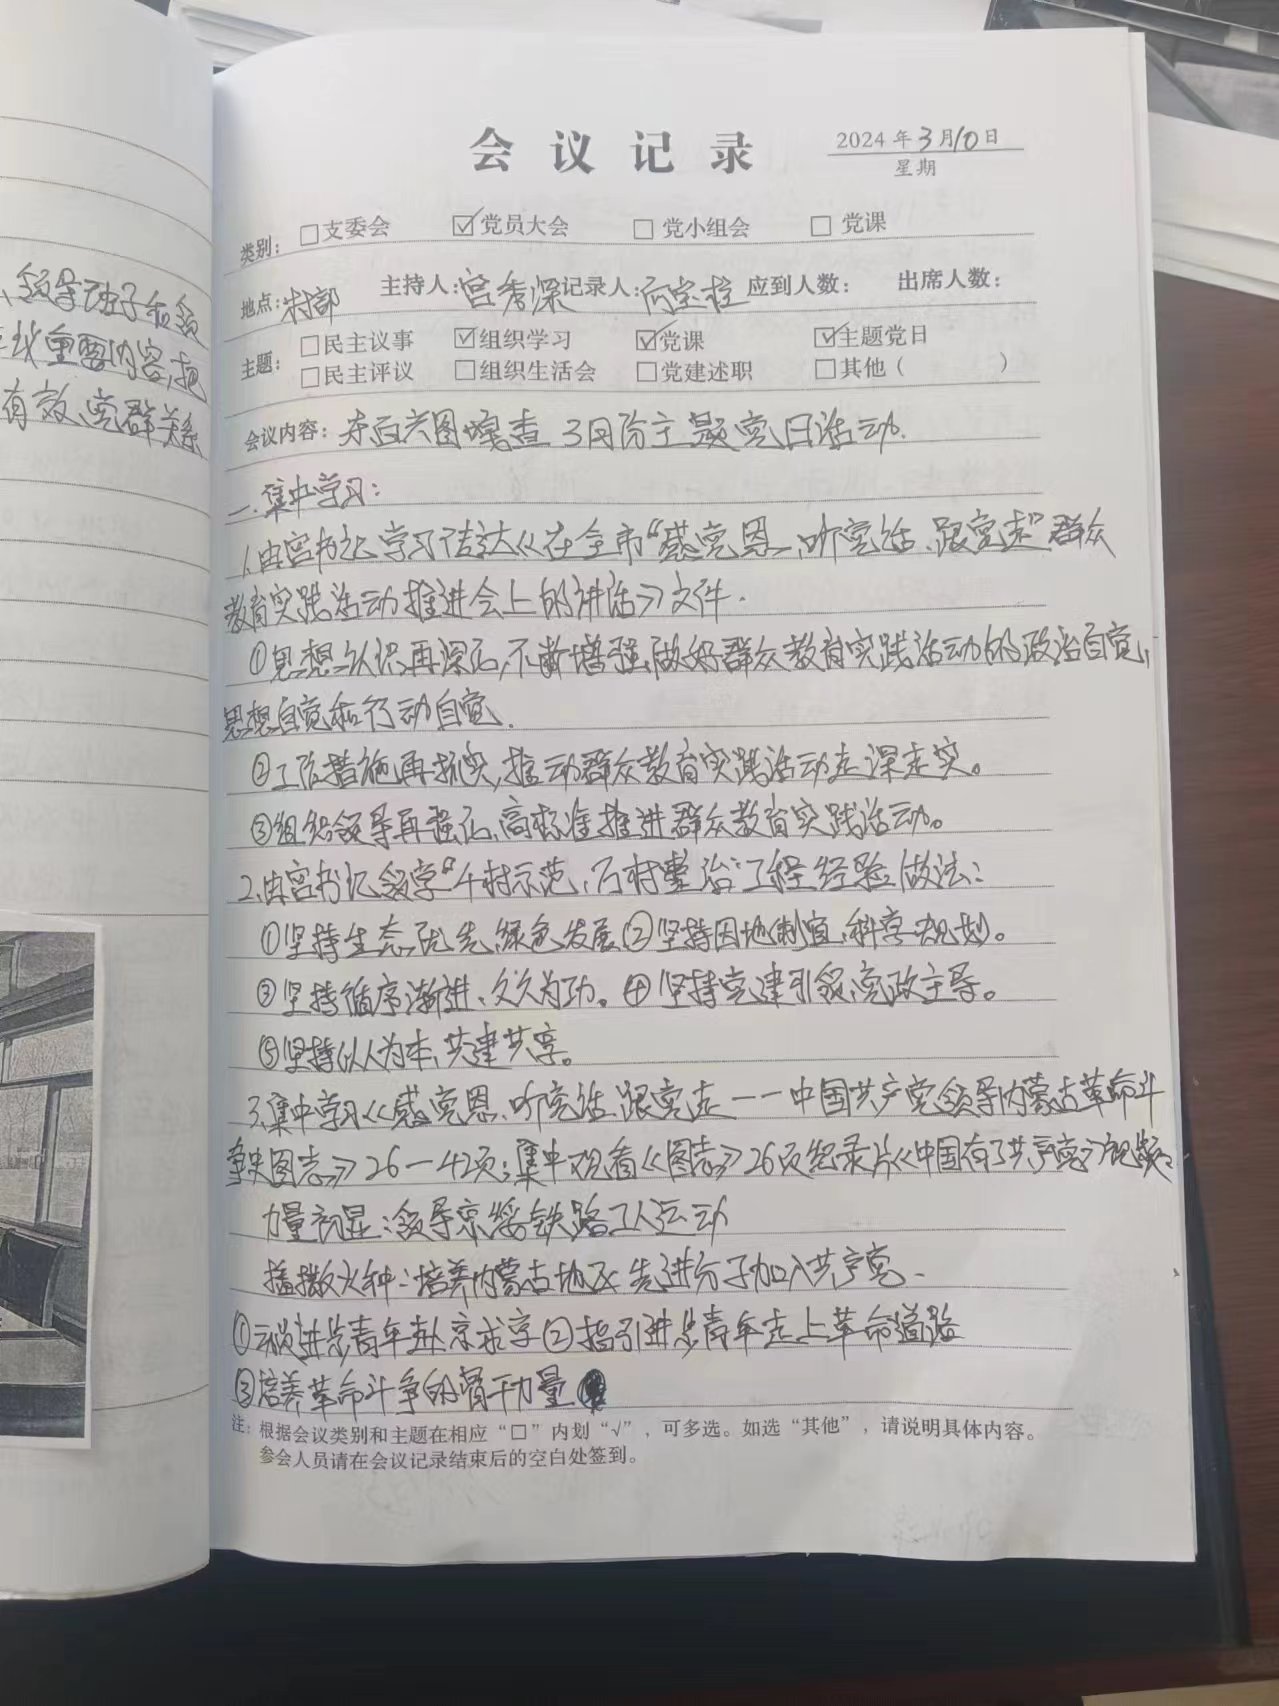 领导班子和领
重要内容,把
有效、党群关系
会议记录
2024年3月10日
星期
类别: □支委会 ☑党员大会 □党小组会 □党课
地点:村部 主持人:宫秀深 记录人: 应到人数: 出席人数:
主题: □民主议事 ☑组织学习 ☑党课 ☑主题党日
□民主评议 □组织生活会 □党建述职 □其他( )
会议内容: 3月份主题党日活动.
一.集中学习:
1、由宫书记学习传达《在全市“感党恩、听党话、跟党走”群众
教育实践活动推进会上的讲话》文件.
①思想认识再深化,不断增强做好群众教育实践活动的政治自觉、
思想自觉和行动自觉.
②工作措施再抓实,推动群众教育实践活动走深走实。
③组织领导再强化,高标准推进群众教育实践活动。
2、由宫书记领学“千村示范、万村整治”工程经验做法:
①坚持生态优先,绿色发展②坚持因地制宜,科学规划。
③坚持循序渐进、久久为功。④坚持党建引领,党政主导。
⑤坚持以人为本,共建共享。
3、集中学习《感党恩、听党话、跟党走——中国共产党领导内蒙古革命斗
争史图志》26—42页;集中观看《图志》26页纪录片《中国有了共产党》视频:
力量初显:领导京绥铁路工人运动
播撒火种:培养内蒙古地区先进分子加入共产党.
①动员进步青年赴京求学②指引进步青年走上革命道路
③培养革命斗争的骨干力量
注:根据会议类别和主题在相应“□”内划“√”,可多选。如选“其他”,请说明具体内容。
参会人员请在会议记录结束后的空白处签到。